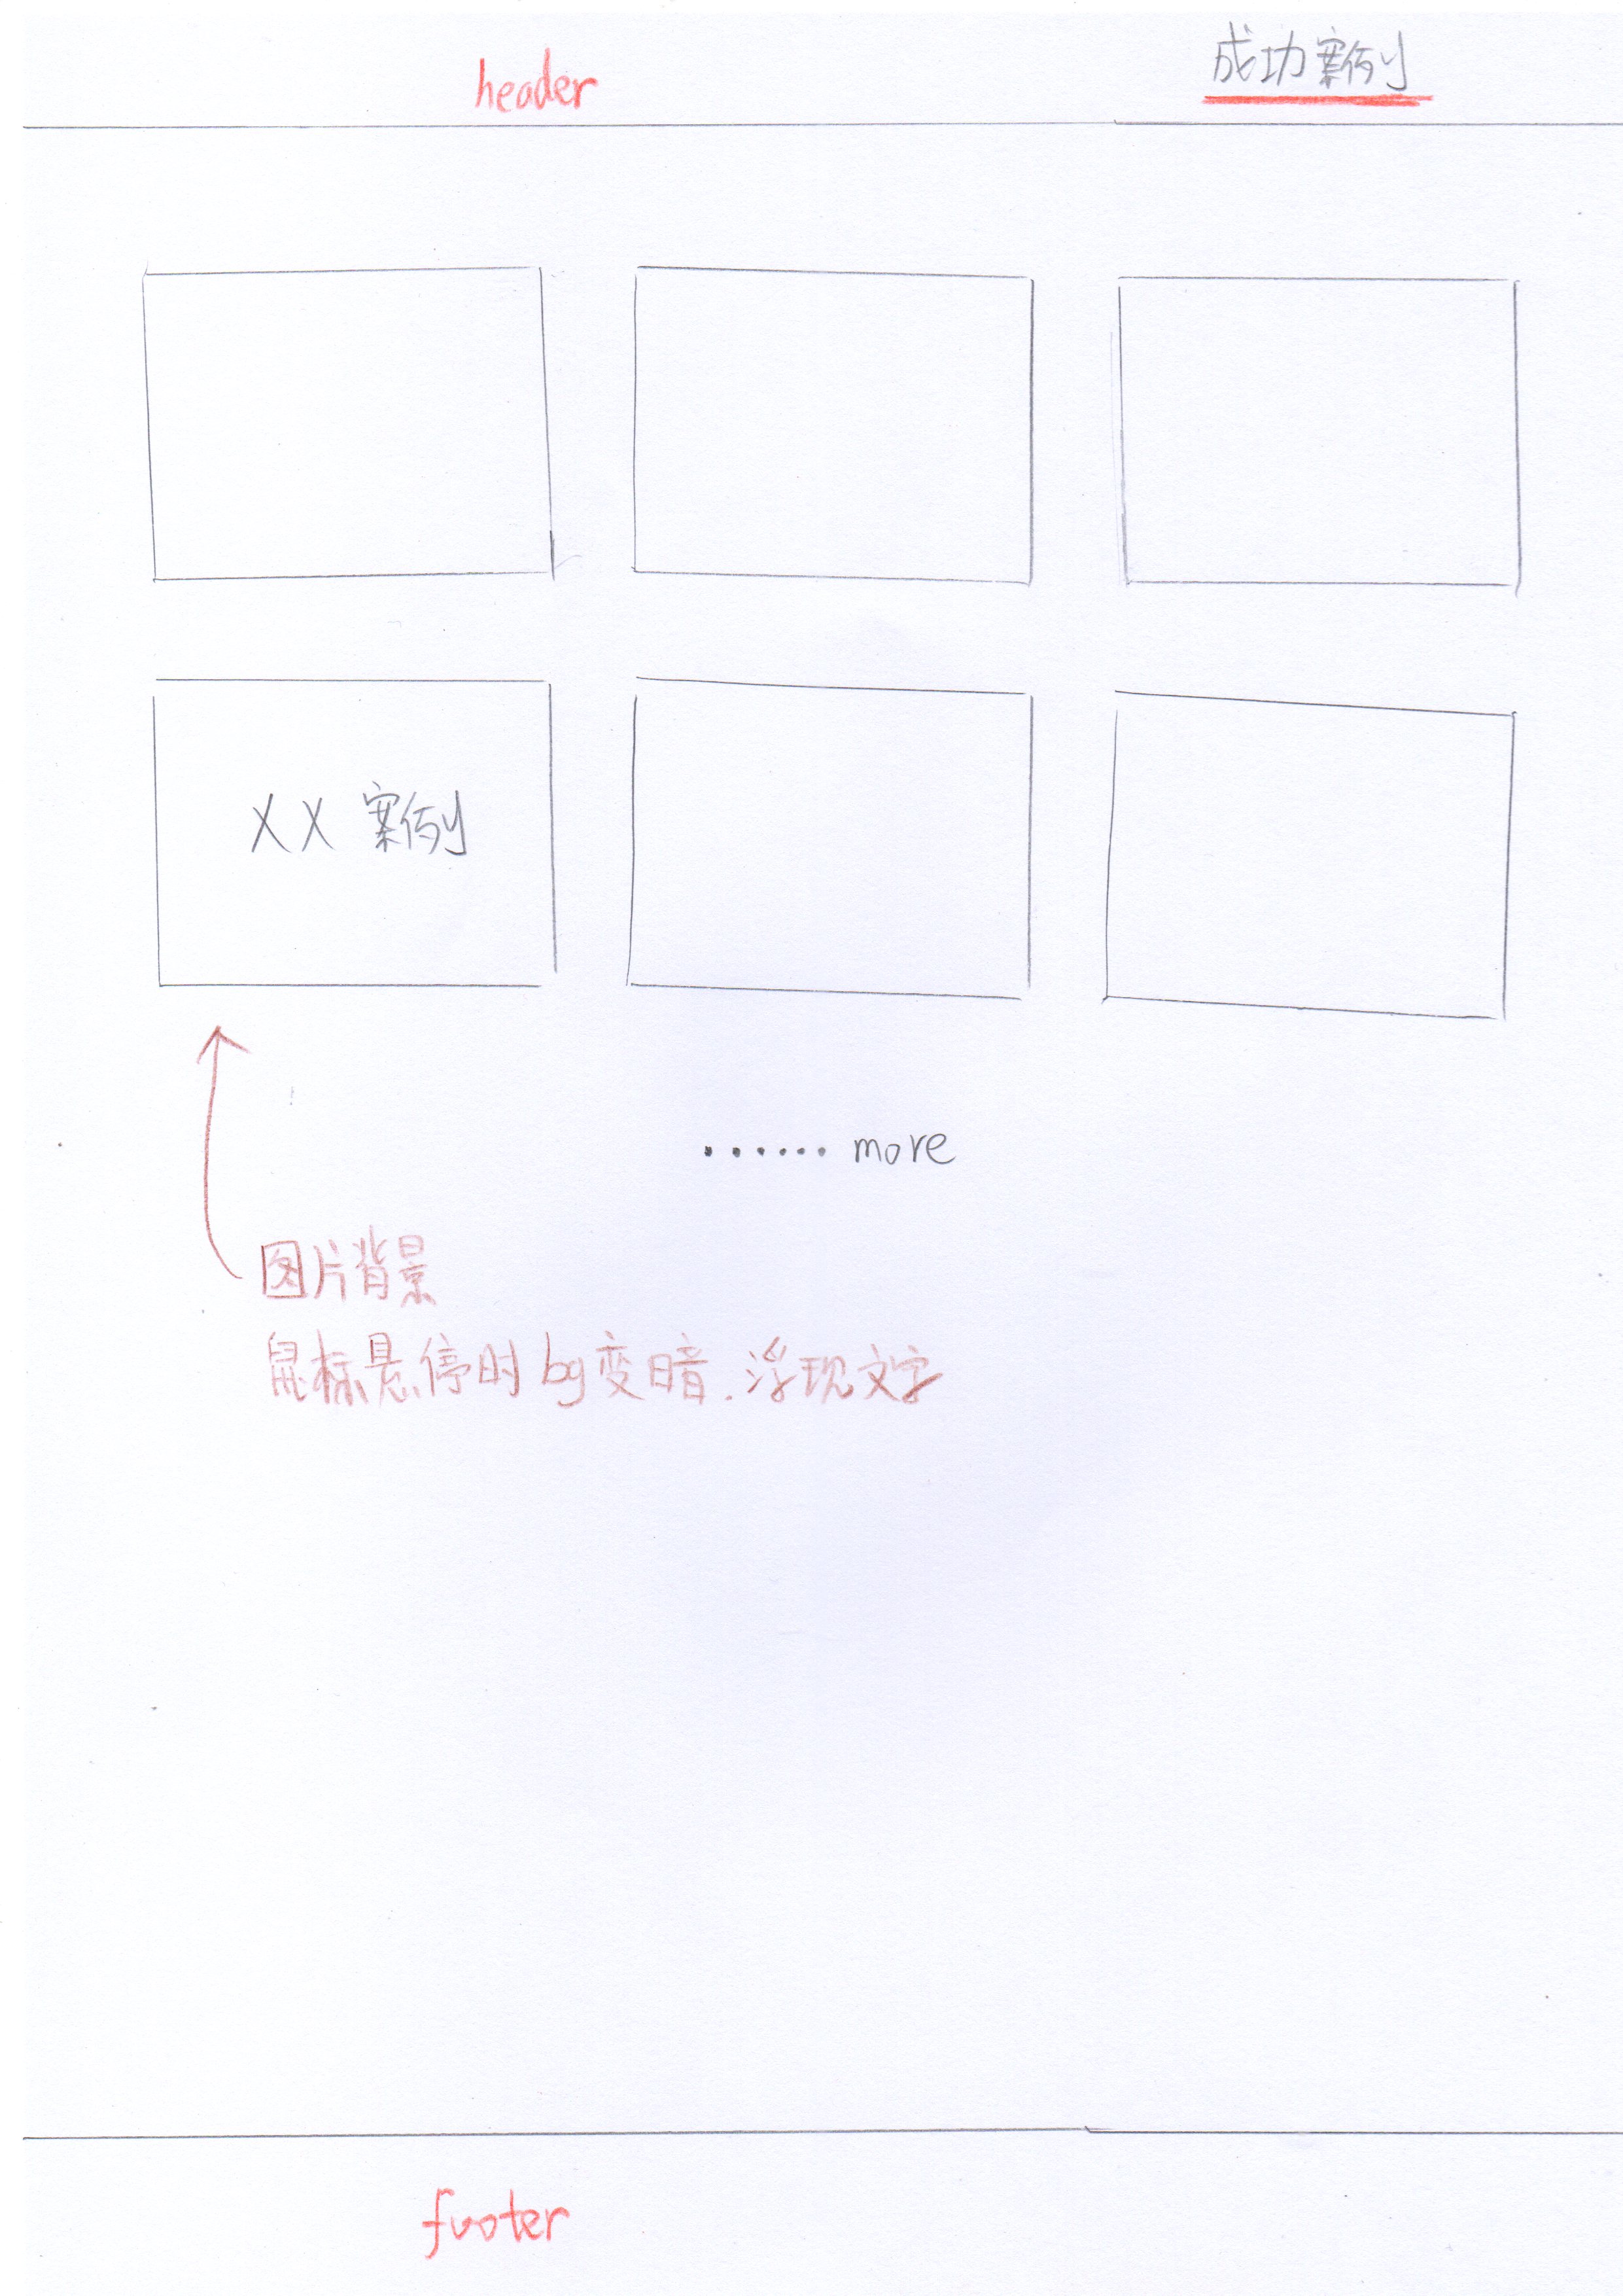 header
成功案例
XX 案例
...... more
图片背景
鼠标悬停时 bg变暗.浮现文字
footer